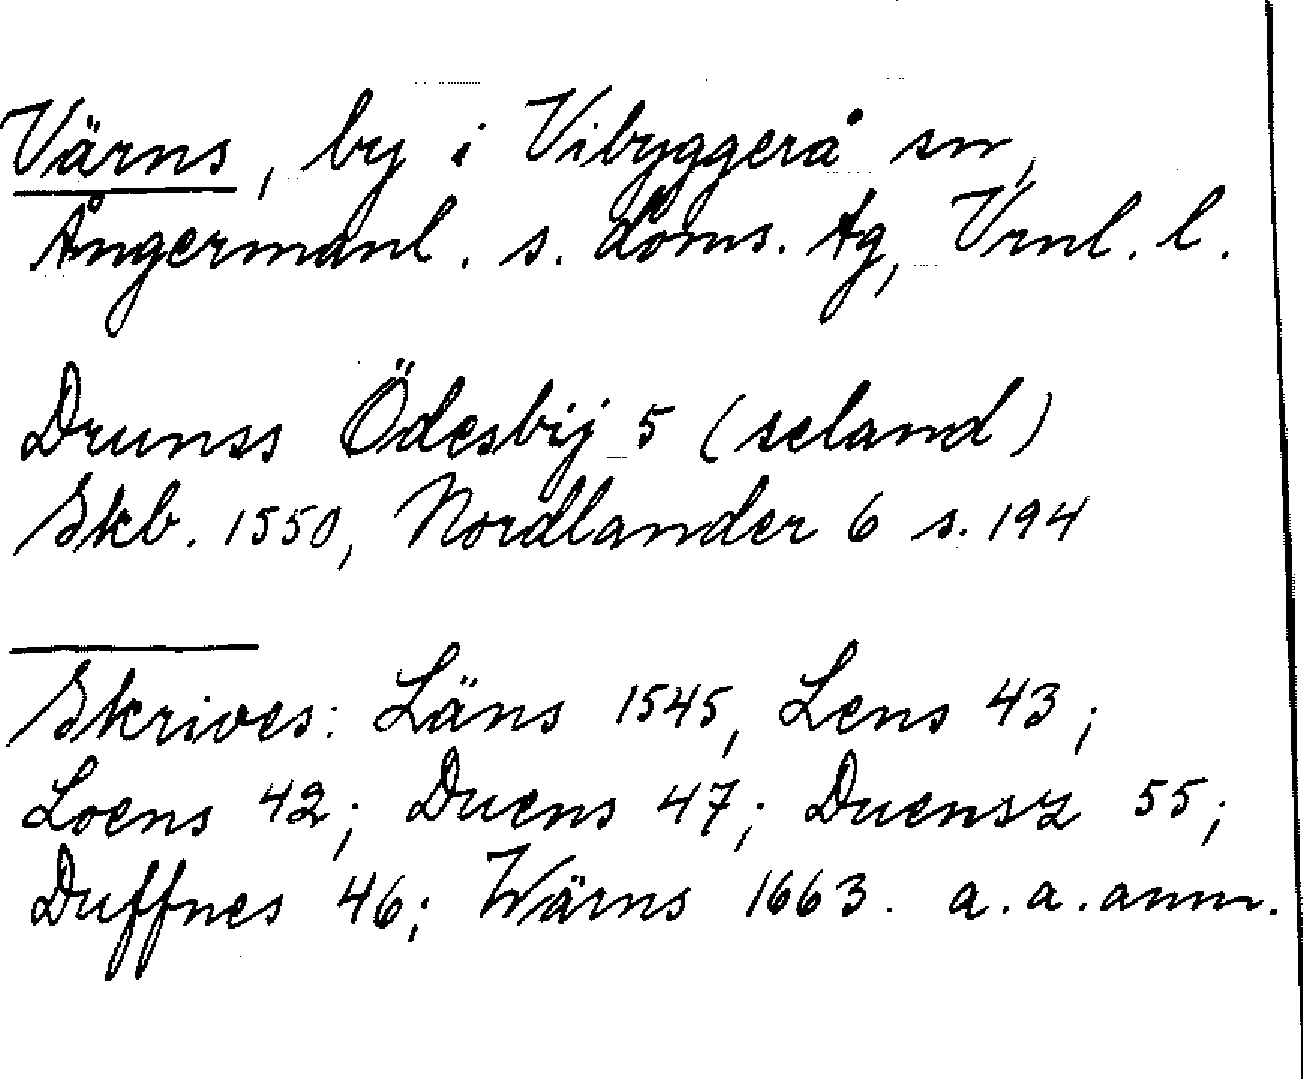 Värns, by i Vibyggerå sn,
Ångermanl. s. doms. tg, Vrnl. l.
Drunss Ödesbij 5 (seland)
Skb. 1550, Nordlander 6 s. 194
Skrives: Läns 1545, Lens 43;
Loens 42; Duens 47; Duensz 55;
Duffnes 46; Wärns 1663. a.a. anm.